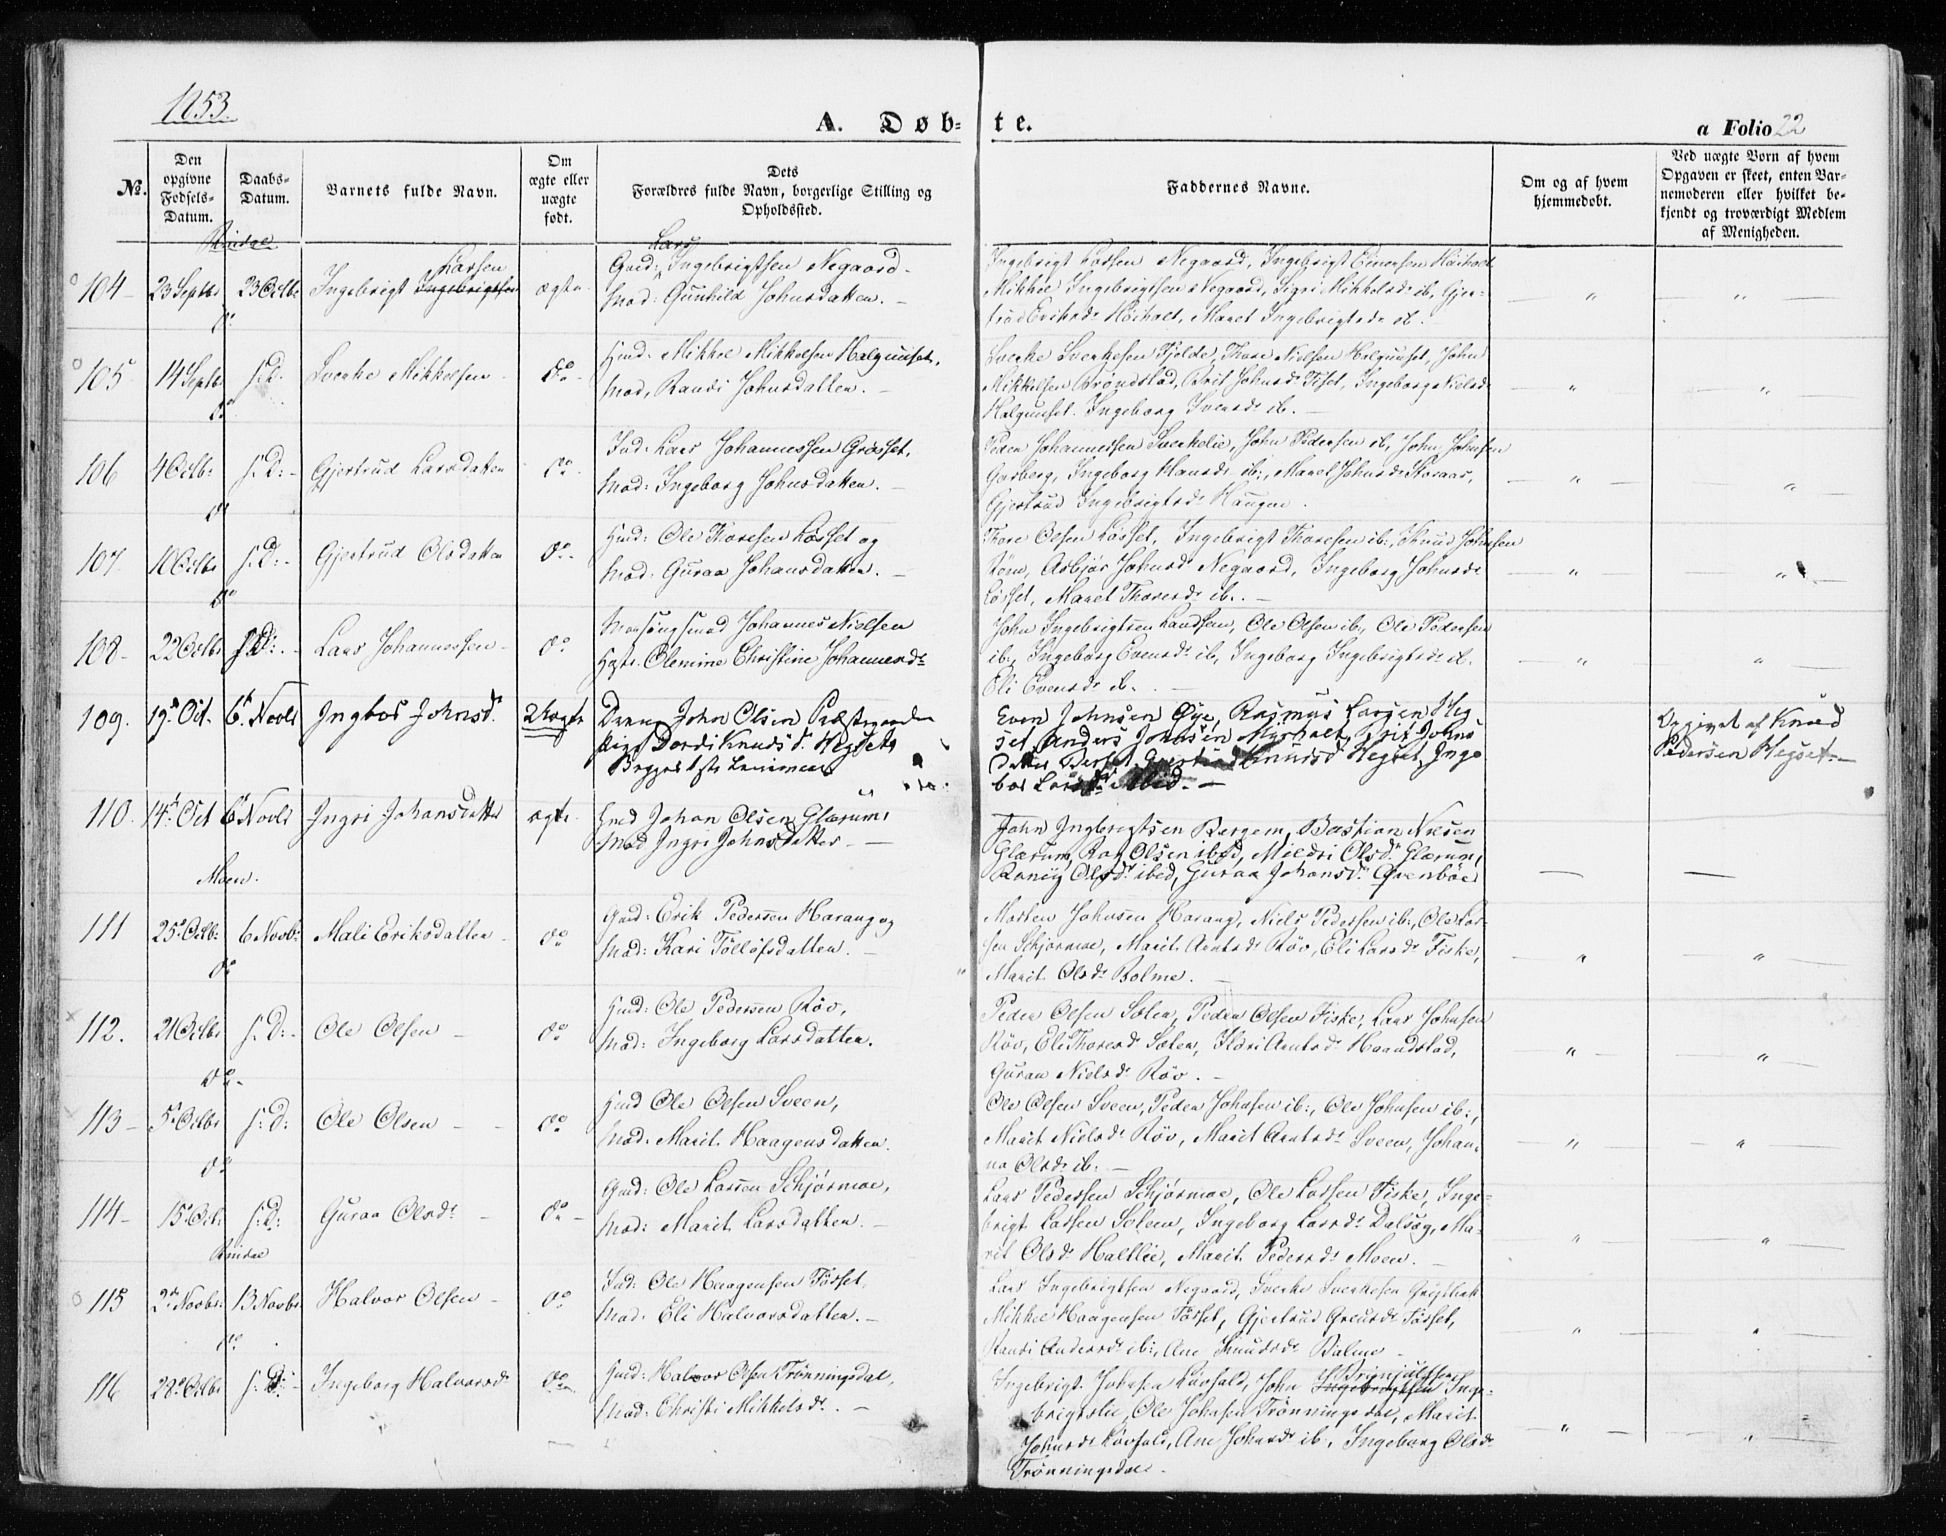 1853.
A. Døb-
te.
a Folio 22
No.
Den opgivne Fødsels-Datum.
Daabs-Datum.
Barnets fulde Navn.
Om ægte eller uægte født.
Dets Forældres fulde Navn, borgerlige Stilling og Opholdssted.
Faddernes Navne.
Om og af hvem hjemmedøbt.
Ved uægte Born af hvem Opgaven er skeet, enten Barnemoderen eller hvilket bekjendt og troværdigt Medlem af Menigheden.
Rindal
104 23 Septbr 23 Octbr Ingebrigt Larsen ægte
Gmd: Lars Ingebrigtsen Negaard
Mod: Gunhild Johnsdatter. —
Ingebrigt Larsen Negaard, Ingebrigt
Mikkel Ingebrigtsen Negaard, Sigri Mikkelsdr ib, Gjer-
trud Eriksdr Høiholt, Maret Ingebrigtsdr ib.
do
105 14 Septbr s: D. Sverke Mikkelsen do
Gmd: Mikkel Mikkelsen Halgunset,
Mod, Randi Johnsdatter. —
Sverke Sverkesen Fjelde, Thore Nielsen Halgunset, John
Mikkelsen Brøndstad, Brit Johnsdr Fiset, Ingeborg Nielsdr
Halgunset. Ingeborg Svensdr ib. —
do
106 4 Octbr s: D: - Gjertrud Larsdatter do
Ind: Lars Johannessen Grøset,
Mod: Ingeborg Johnsdatter. —
Peder Johannessen Sverkelie, John Pedersen ib, John Johnsen
Garberg, Ingeborg Hansdr ib:, Maret Johnsdr Storaas,
Gjertrud Ingebrigtsdr Haugen.
do
107 10 Octbr s: D: - Gjertrud Olsdatter do
Gmd: Ole Thoresen Løsset og
Mod: Guraa Johansdatter. —
Thore Olsen Løsset, Ingebrigt Thoresen ib:, Knud Johnsen
Røen, Asbjør Johnsdr Negaard, Ingeborg Johnsdr
Løsset, Maret Thoresdr ib. —
do
108 22 Octbr s: D: - Lars Johannessen do
Johannes Nielsen
Olemine Christine Johannesdr
John Ingebrigtsen Landsem, Ole Olsen ib, Ole Pedersen
ib:, Ingeborg Evensdr ib, Ingeborg Ingebrigtsdr ib.
Eli Evensdr ib.
109. 19de Oct. 6t Novbr Ingbor Johnsd. 2 Uægte
Dreng John Olsen Præstgaarden
Pige Dordi Knudsd. Hegset
Begges 1ste Leiermaal
Even Johnsen Øye, Rasmus Larsen Heg
set, Anders Johnsen Myrholt, Brit Johns
datter Gjertrud Knudsd Hegset, Inge
bor Larsd. ibid. —
Opgivet af Knud
Pedersen Hegset —
110. 14t Oct 6t Novbr Ingri Johansdatter ægte
Gmd Johan Olsen Glærum,
Mod Ingri Johnsdatter —
John Ingebrigtsen Bergem, Bastian Nilsen
Glærum, Olsen ibid, Mildri Olsd. Glærum,
Ronni Olsd. ibid, Guraa Johansd. Ørenbøe
Moen.
111 25de Octb: 6 Novb: Mali Eriksdatter do
Gmd: Erik Pedersen Harang og
Mod: Kari Tøllefsdatter. —
Morten Johnsen Harang, Niels Pedersen ib:, Ole Lar-
sen Schjørmoe, Marit Arntsdr Røv, Eli Larsdr Fiske,
Marit Olsdr Bolme. —
do
112. 21 Octbr s: D: - Ole Olsen do
Gmd: Ole Pedersen Røv,
Mod: Ingeborg Larsdatter.
Peder Olsen Sølen, Peder Olsen Fiske, Lars Johnsen
Røv, Eli Thoresd Sølen, Ildri Arntsdr Haandstad,
Guraa Nielsdr Røv. —
do
113 5te Octbr s: D: Ole Olsen do
Gmd Ole Olsen Sveen,
Mod: Marit Haagensdatter.
Ole Olsen Sveen, Peder Johnsen ib:, Ole Johnsen ib:,
Marit Nielsdr Røv, Marit Arntsdr Sveen, Johan-
na Olsdr ib: —
do
114 15 Oct: s: D: Guraa Olsdr do
Gmd: Ole Larsen Schjørmoe,
Mod: Marit Larsdatter. —
Lars Pedersen Schjørmoe, Ole Larsen Fiske, Inge-
brigt Larsen Søleen, Ingeborg Larsdr Dalsøg, Ma-
rit Olsdr Haltlie, Marit Pedersdr Moen. —
Rindal
115 2den Novbr 13 Novbr Halvor Olsen do
Ind: Ole Haagensen Tørset,
Mod: Eli Halvorsdatter. —
Lars Ingebrigtsen Negaard, Sverke Sverkesen
Mikkel Haagensen Tørset, Gjertrud Tørset,
Randi Andersdr ib:, Ane Knudsdr Bolme —
do
116 28de Octbr s: D: Ingeborg Halvorsdr do
Gmd: Halvor Olsen Trønningsdal,
Mod: Christi Mikkelsdr. —
Ingebrigt Johnsen Løvfald, John Brinjulfsen Inge-
brigtslie, Ole Johnsen Trønningsdal, Marit
Johnsdr Løvfald, Ane Johnsdr ib:, Ingeborg Olsdr
Trønningsdal.